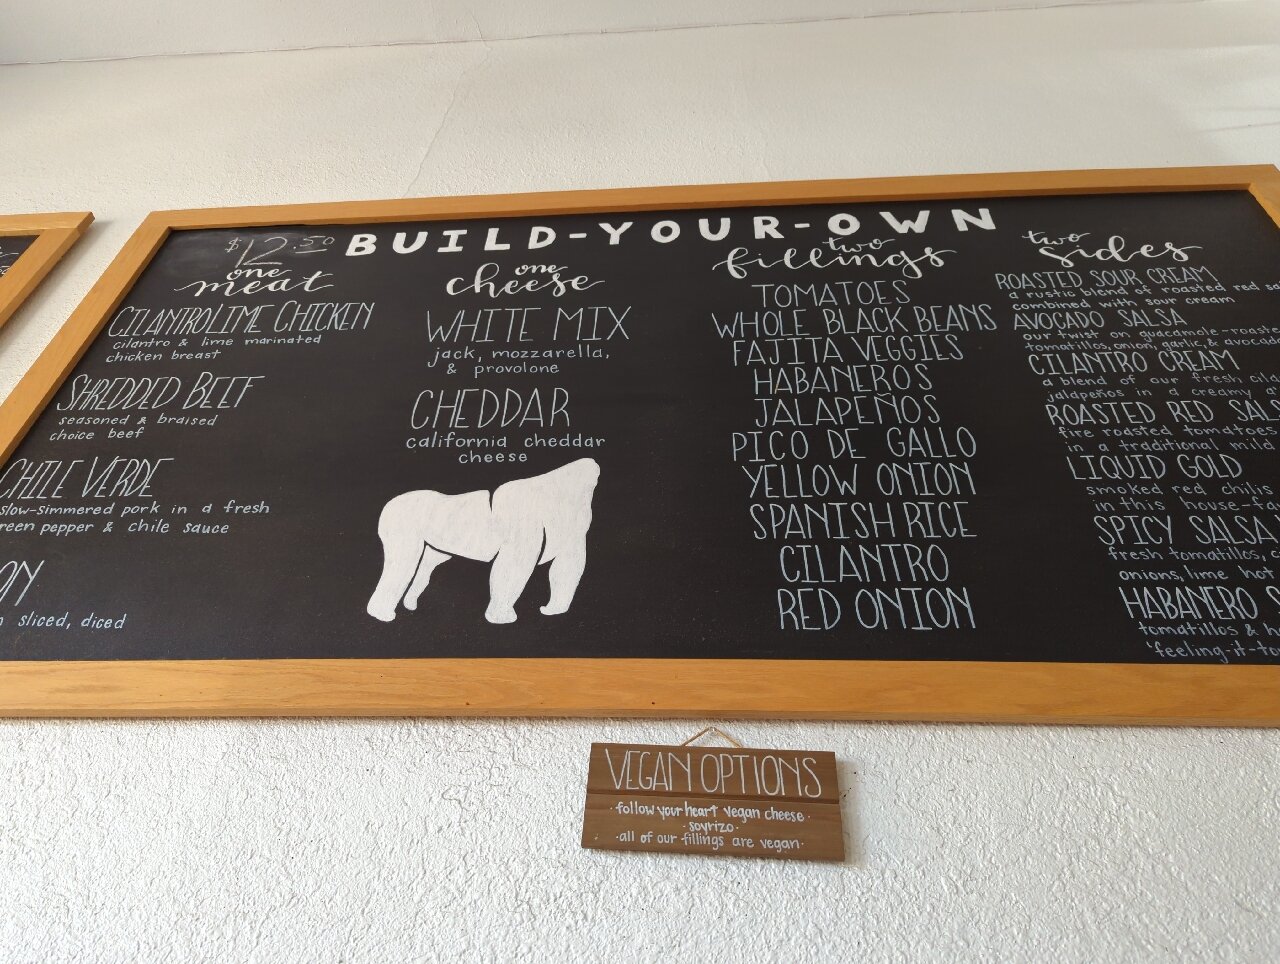 BUILD-YOUR-OWN
$12.50
one
meat
CILANTRO LIME CHICKEN
cilantro & lime marinated
chicken breast
SHREDDED BEEF
seasoned & braised
choice beef
CHILE VERDE
slow-simmered pork in a fresh
pepper & chile sauce
sliced, diced
one
cheese
WHITE MIX
jack, mozzarella,
& provolone
CHEDDAR
california cheddar
cheese
two
fillings
TOMATOES
WHOLE BLACK BEANS
FAJITA VEGGIES
HABANEROS
JALAPEÑOS
PICO DE GALLO
YELLOW ONION
SPANISH RICE
CILANTRO
RED ONION
two
sides
ROASTED SOUR CREAM
a rustic blend of roasted red
combined with sour cream
AVOCADO SALSA
our twist on guacamole-
tomatillos, onion, garlic, & avocado
CILANTRO CREAM
a blend of our fresh
jalapeños in a creamy
ROASTED RED
fire roasted tomatoes,
in a traditional mild
LIQUID GOLD
smoked red chilis
in this
SPICY SALSA
fresh tomatillos,
onions, lime hot
HABANERO
tomatillos &
VEGAN OPTIONS
·follow your heart vegan cheese·
·soyrizo·
·all of our fillings are vegan·